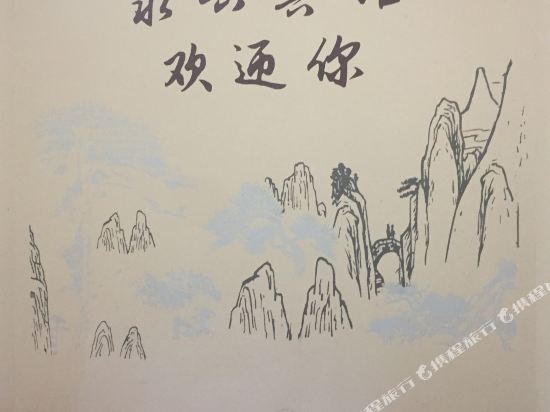 欢迎你
携程旅行
携程旅行